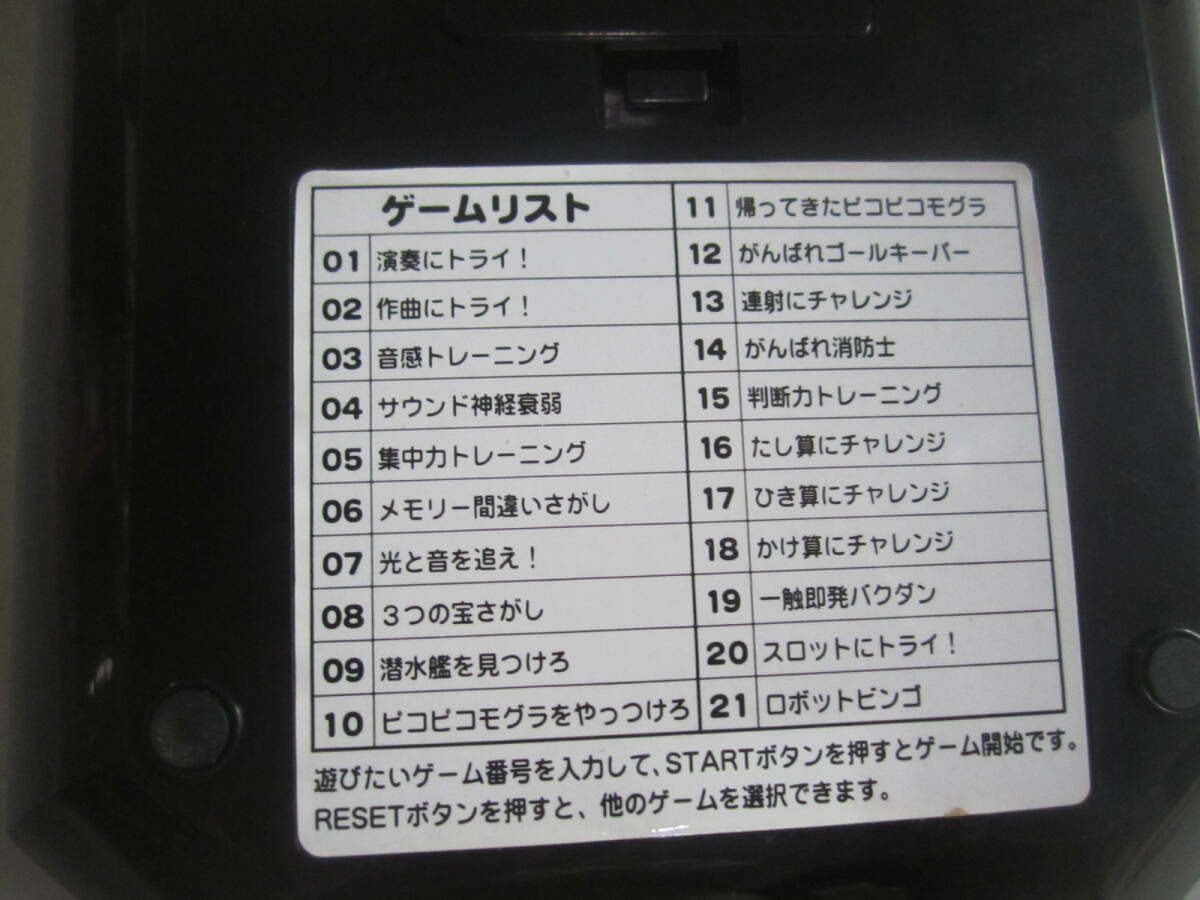 ゲームリスト
01 演奏にトライ！
02 作曲にトライ！
03 音感トレーニング
04 サウンド神経衰弱
05 集中力トレーニング
06 メモリー間違いさがし
07 光と音を追え！
08 3つの宝さがし
09 潜水艦を見つけろ
10 ピコピコモグラをやっつけろ
11 帰ってきたピコピコモグラ
12 がんばれゴールキーパー
13 連射にチャレンジ
14 がんばれ消防士
15 判断力トレーニング
16 たし算にチャレンジ
17 ひき算にチャレンジ
18 かけ算にチャレンジ
19 一触即発バクダン
20 スロットにトライ！
21 ロボットビンゴ
遊びたいゲーム番号を入力して、STARTボタンを押すとゲーム開始です。
RESETボタンを押すと、他のゲームを選択できます。